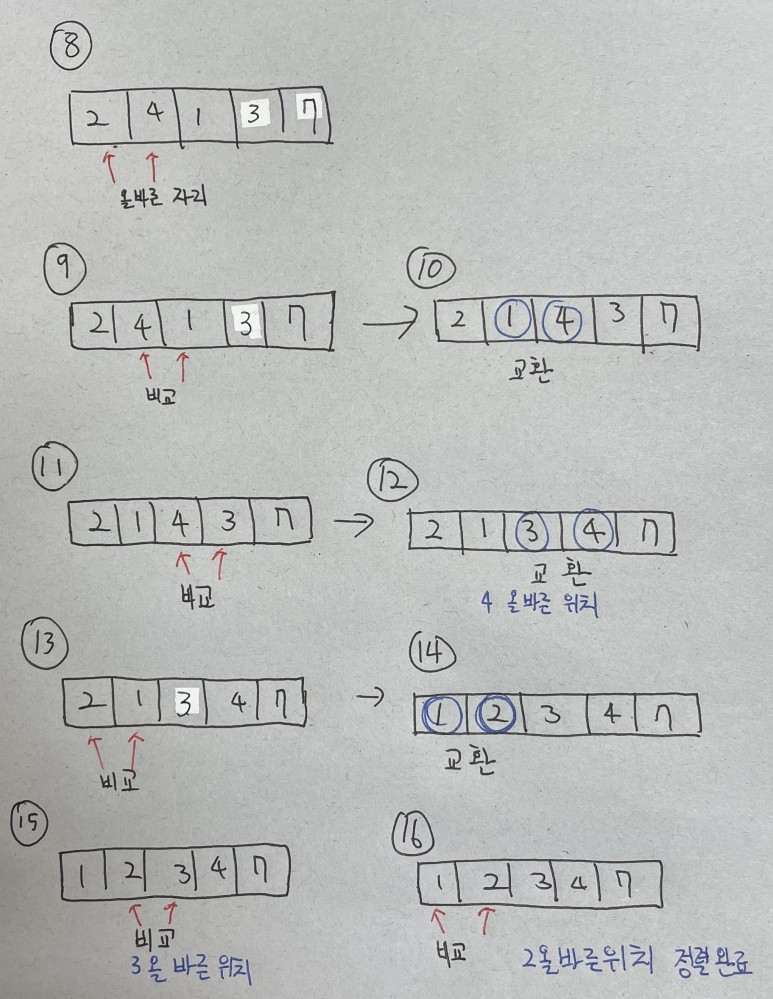 ⑧
2 4 1 3 7
올바른 자리
⑨
2 4 1 3 7
비교
⑩
2 1 4 3 7
교환
⑪
2 1 4 3 7
비교
⑫
2 1 3 4 7
교환
4 올바른 위치
⑬
2 1 3 4 7
비교
⑭
1 2 3 4 7
교환
⑮
1 2 3 4 7
비교
3올바른위치
⑯
1 2 3 4 7
비교
2올바른위치 정렬완료